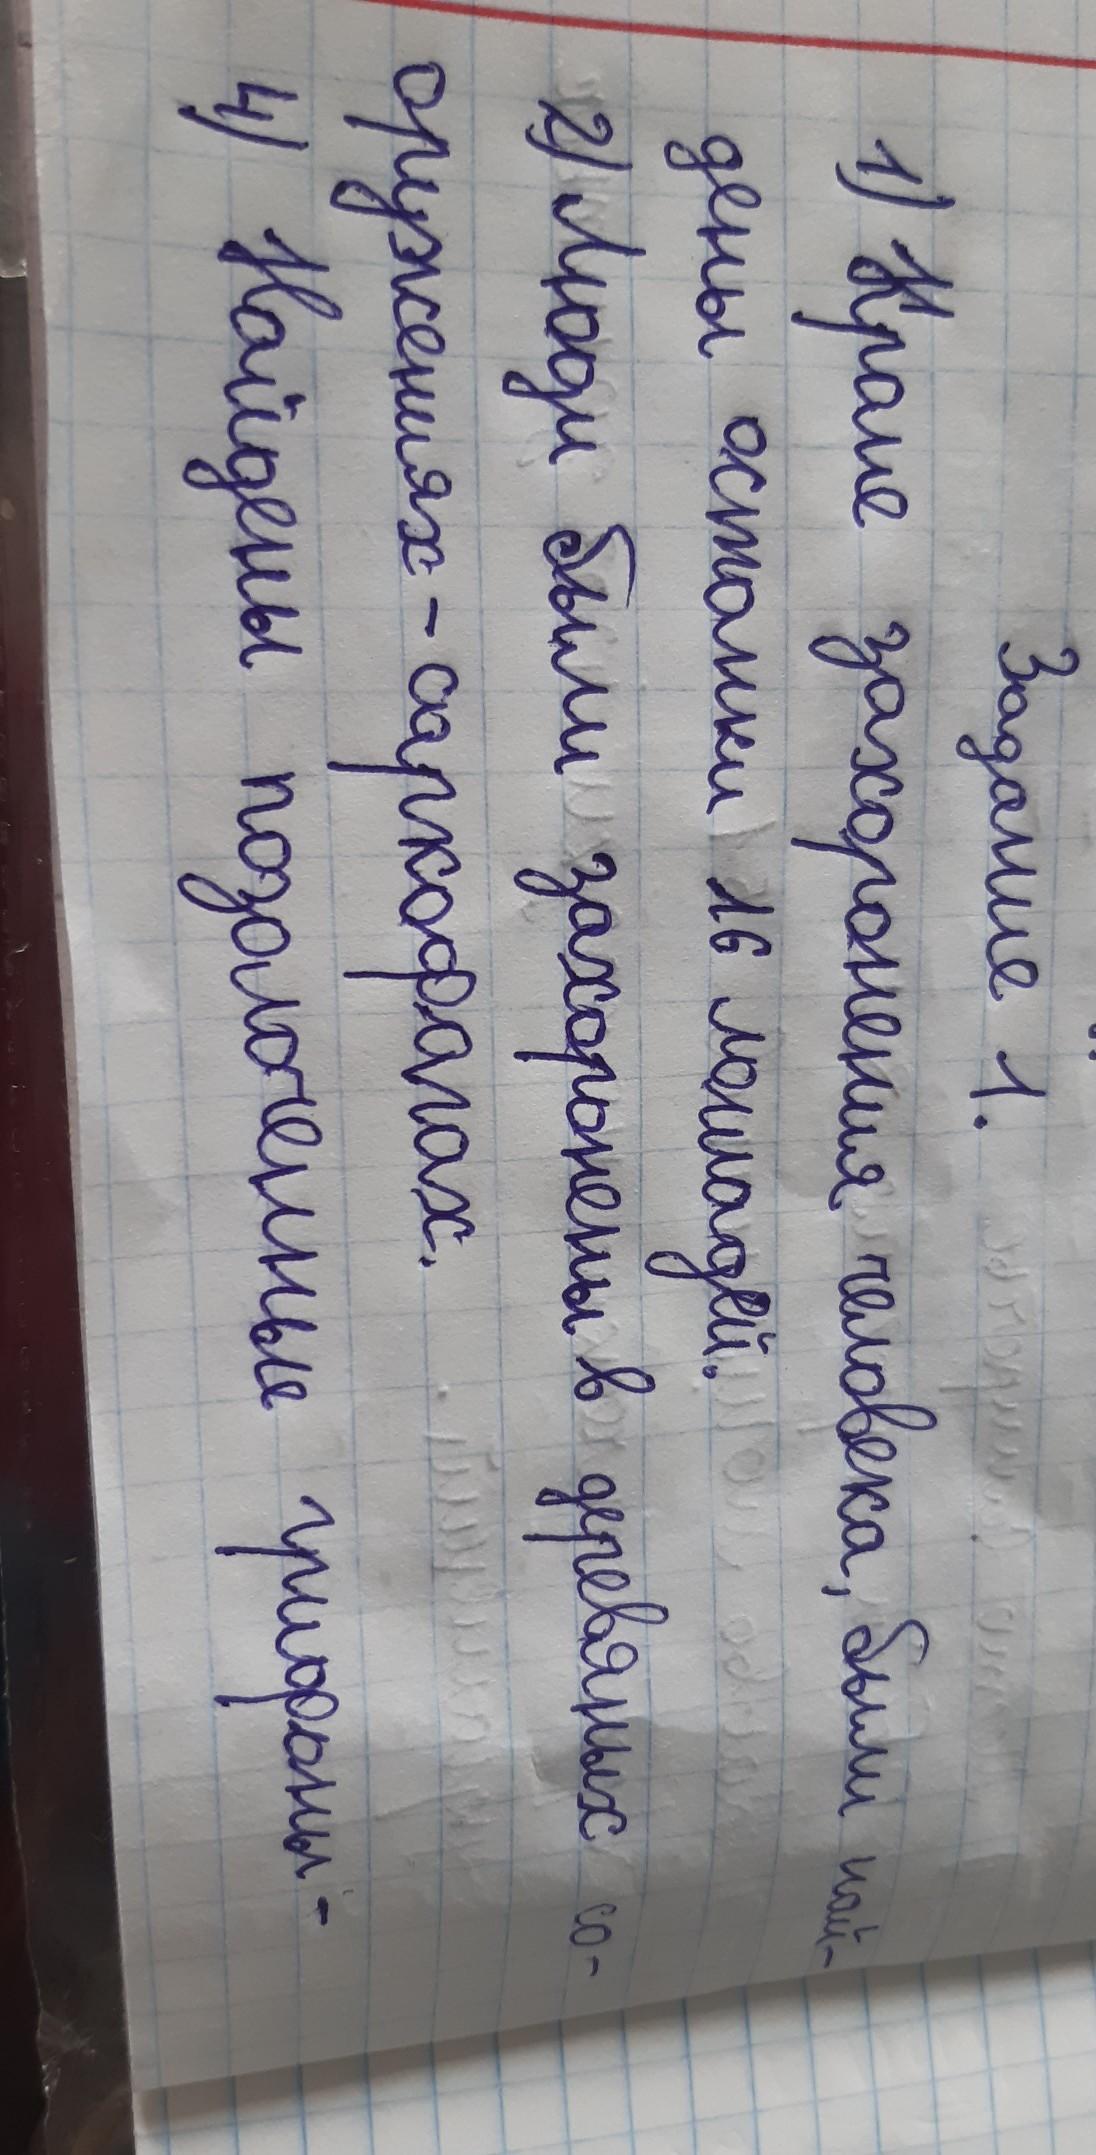 Задание 1.
1) Кроме захоронения человека, были най-
дены останки 16 лошадей.
2) Люди были захоронены в деревяных со-
оружениях-саркофагах.
4) Найдены позолоченные грифоны-